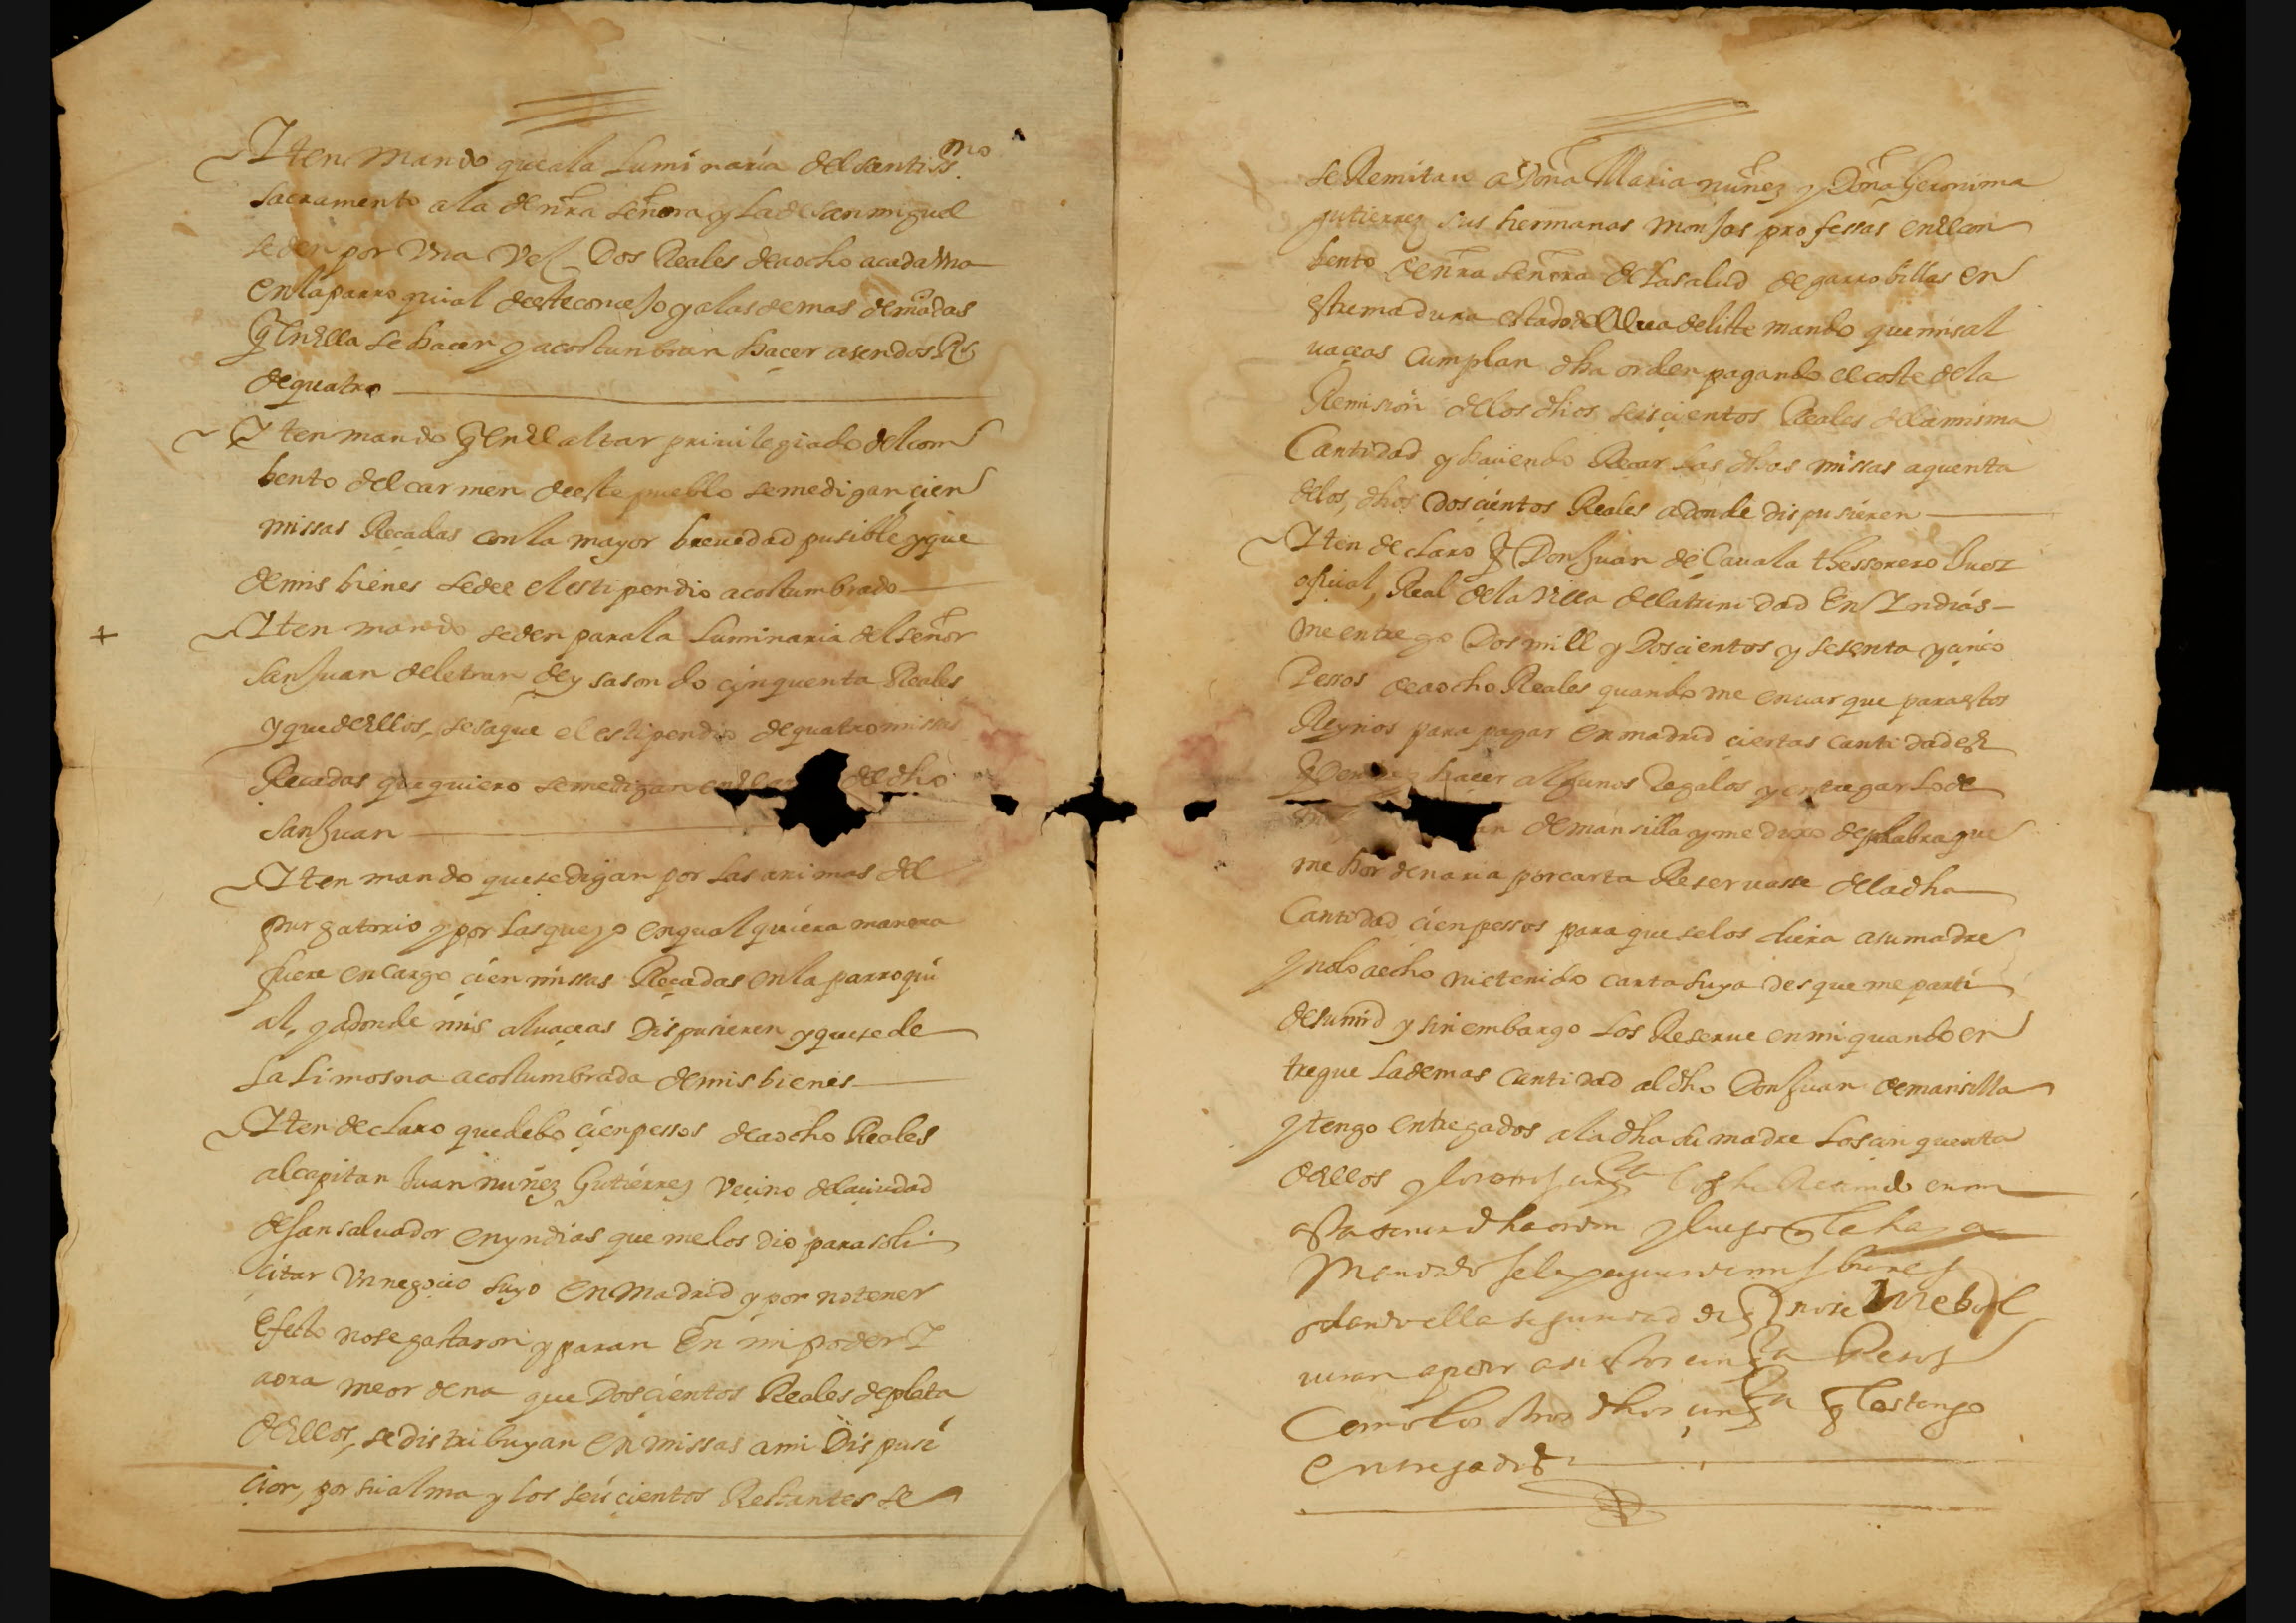 Iten mando que a la luminaria del santiss.mo
sacramento a la de nra señora y la de san miguel
se den por una vez Dos Reales de a ocho a cada una
en la parroquial deste concejo y a las demas demādas
q en ella se hacen y acostunbran hacer a sendos Rs
de quatro
Iten mando q en el altar privilegiado del com
bento del carmen deste pueblo se me digan cien
missas Reçadas con la mayor brevedad pusible y que
de mis bienes se dee el estipendio acostumbrado
Iten mando se den para la luminaria del señor
san Juan de letran de ysasondo cinquenta Reales
y que dellos, se saque el estipendio de quatro missas
Reçadas que quiero se me digan en el del dho
san Juan
Iten mando que se digan por las animas del
purgatorio y por las que yo en qualquiera manera
fuere en cargo cien missas Reçadas en la parroqui
al, y adonde mis alvaceas dispusieren y que se de
la limosna acostumbrada de mis bienes
Iten declaro que debo cien pessos de a ocho Reales
al capitan Juan nuñez Gutierrez vecino de la ciudad
de san salvador en yndias que me los dio para soli
citar un negocio suyo en Madrid y por no tener
efecto no se gastaron y paran en mi poder I
aora me ordena que Doscientos Reales de plata
dellos, se distribuyan en missas a mi Dispusi
cion, por su alma y los seiscientos Restantes se
se Remitan a Doña Maria nuñez y Doña Geronima
gutierrez sus hermanas monjas professas en el con
bento de nra señora de la salud de garrobillas en
estremadura estado de Alva de liste mando que mis al
vaceas cumplan dha orden pagando el coste de la
Remision de los dhos seiscientos Reales de la misma
Cantidad y haciendo Reçar las dhas missas a quenta
de los, dhos Doscientos Reales adonde dispusieren
Iten declaro q Don Juan de Çavala thessorero Juez
oficial, Real de la villa de la trinidad En Indias
me entrego Dos mill y Doscientos y sesenta y cinco
Pessos de a ocho Reales quando me enbarque para estos
Reynos para pagar en madrid ciertas cantidades
hacer algunos Regalos y entregar lo de
de mansilla y me dixo de palabra que
me hordenaria por carta Reservasse de la dha
Cantidad cien pessos para que se los diera a su madre
y no lo a echo ni e tenido carta suya des que me parti
de su md y sin embargo los Reserve en mi quando en
tregue la demas cantidad al dho Don Juan de mansilla
y tengo entregados a la dha su madre los cinquenta
dellos y los otros cinqta los he Retenido en mi
asta tener dha orden y luego q la haya
Mando se le paguen de mis bienes
dando ella seguridad de q no se me bol
veran a pedir asi estos cinqta Pesos
Como los otros dhos cinqta q les tengo
entregados